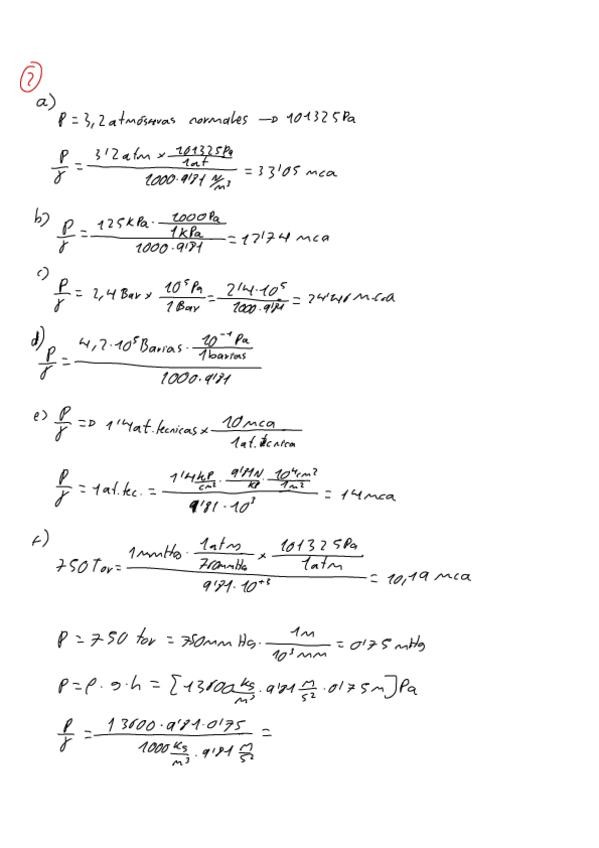 2
a)
P = 3,2 atmósferas normales → 101325 Pa
P/γ = (3'2 atm × 101325 Pa/1 at)/(1000·9'81 N/m³) = 33'05 mca
b) P/γ = (125 kPa · 1000 Pa/1 kPa)/(1000·9'81) = 12'74 mca
c) P/γ = 2,4 Bar × 10⁵ Pa/1 Bar = 2'4·10⁵/1000·9'81 = 24'46 mca
d) P/γ = (4,2·10⁵ Barias · 10⁻¹ Pa/1 barias)/(1000·9'81)
e) P/γ => 1'4 at. tecnicas × 10 mca/1 at. tecnica
P/γ = 1 at. tec. = (1'4 kp/cm² · 9'81 N/kp · 10⁴ cm²/1 m²)/(9'81·10³) = 14 mca
f)
750 Tor = (1 mmHg · 1 atm/760 mmHg × 101325 Pa/1 atm)/(9'81·10⁺³) = 10,19 mca
P = 750 tor = 750 mm Hg · 1 m/10³ mm = 0'75 mHg
P = ρ·g·h = [13600 kg/m³ · 9'81 m/s² · 0'75 m] Pa
P/γ = (13600·9'81·0'75)/(1000 kg/m³ · 9'81 m/s²) =